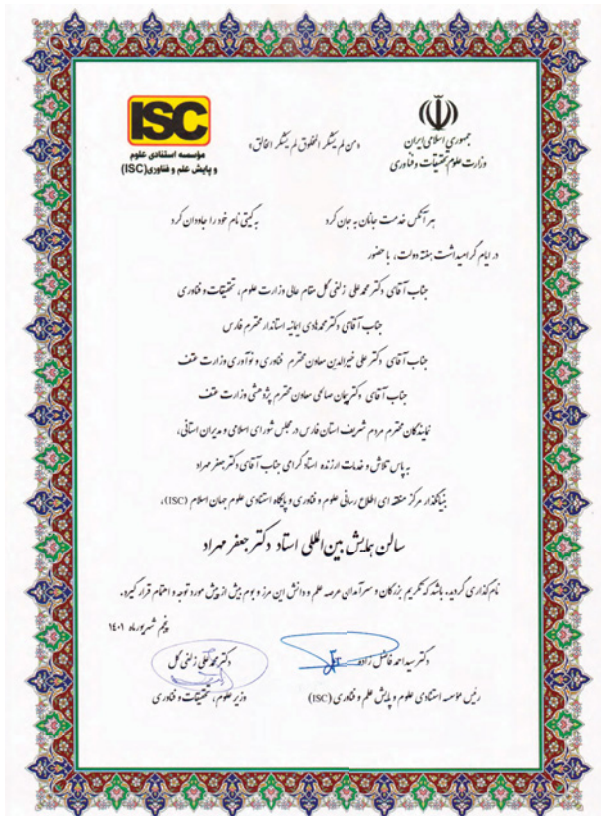 جمهوری اسلامی ایران
وزارت علوم تحقیقات و فناوری
«من لم یشکر المخلوق لم یشکر الخالق»
ISC
مؤسسه استنادی علوم
و پایش علم و فناوری(ISC)
هر آنکس خدمت جانان به جان کرد به گیتی نام خود را جاودان کرد
در ایام گرامیداشت هفته دولت، با حضور
جناب آقای دکتر محمد علی زلفی گل مقام عالی وزارت علوم، تحقیقات و فناوری
جناب آقای دکتر محمد هادی ایمانیه استاندار محترم فارس
جناب آقای دکتر علی خیرالدین معاون محترم فناوری و نوآوری وزارت عتف
جناب آقای دکتر پیمان صالحی معاون محترم پژوهشی وزارت عتف
نمایندگان محترم مردم شریف استان فارس در مجلس شورای اسلامی و مدیران استانی،
به پاس تلاش و خدمات ارزنده استاد گرامی جناب آقای دکتر جعفر مهراد
بنیانگذار مرکز منطقه ای اطلاع رسانی علوم و فناوری و پایگاه استنادی علوم جهان اسلام (ISC)،
سالن همایش بین‌المللی استاد دکتر جعفر مهراد
نام گذاری گردید. باشد که تکریم بزرگان و سرآمدان عرصه علم و دانش این مرز و بوم بیش از پیش مورد توجه و اهتمام قرار گیرد.
پنجم شهریورماه ۱۴۰۱
دکتر سید احمد فاضل زاده
رئیس مؤسسه استنادی علوم و پایش علم و فناوری (ISC)
دکتر محمد علی زلفی گل
وزیر علوم، تحقیقات و فناوری